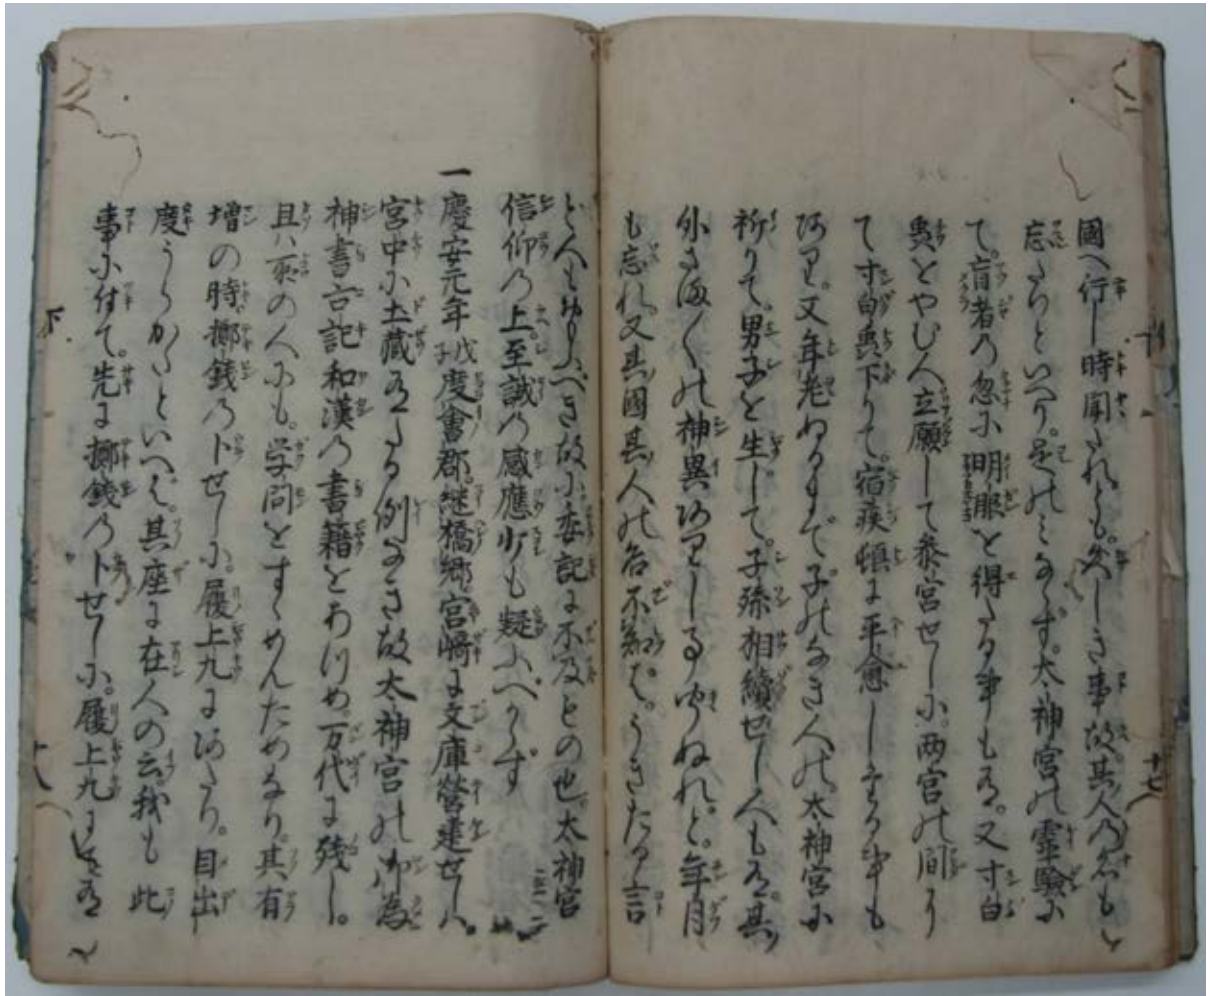 國へ行し時聞たれども。久しき事故。其人の名も
忘たりといへり。是のミならず。太神宮の霊験に
て。盲者の忽に明眼を得たる事も有。又寸白
奧とやむ人立願して参宮せしに。両宮の間
て寸白下りて。宿疾頓に平愈しする事も
又年老ぬるまで子のなき人の。太神宮に
祈りて。男子を生じて。子孫相續せし人も有。其
外さま〴〵の神異ありし事聞ぬれ。ど。年月
も忘れ又其國其人の名不知ば。うきたる言
と人もおもふべき故に。委記に不及もの也。太神宮
信仰の上。至誠の感應少も疑ふべからず
一慶安元年戊子度會郡。継橋郷宮崎に文庫營建せしハ。
宮中に土藏有たる例なき故太神宮の御為
神書古記和漢の書籍をあつめ万代に残し。
且ハ衆の人にも。学問をすゝめんためなり。其有
増の時擲錢の卜せしに。履上九にあたり。目出
度うらかたといへば。其座に在人の云。我も此
事に付て。先に擲錢の卜せしに。履上九
十七
十八
下